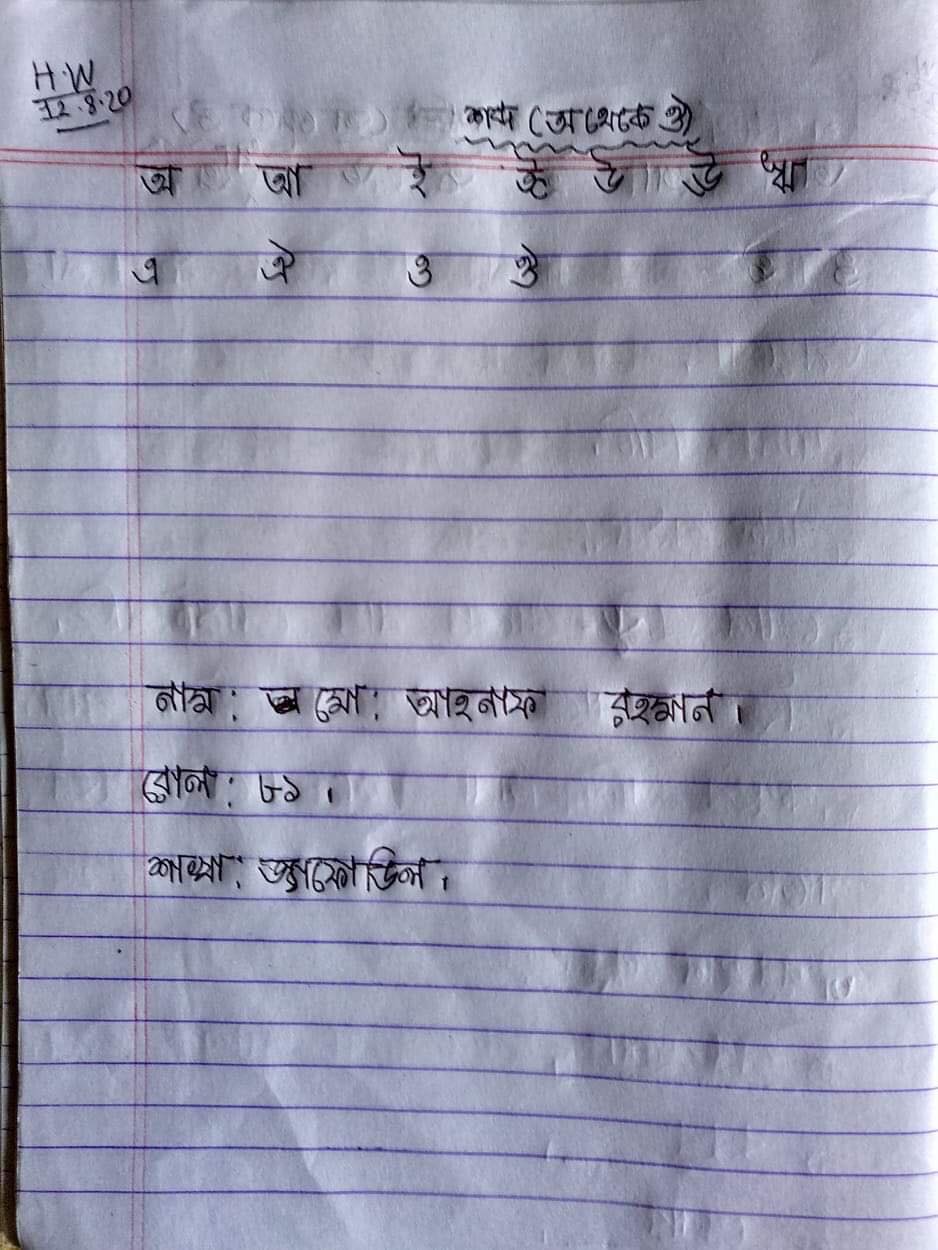 H.W
12.8.20
শব্দ (অ থেকে ঔ)
অ আ ই ঈ উ ঊ ঋ
এ ঐ ও ঔ
নাম : মো : আহনাফ রহমান ।
রোল : ৮১ ।
শাখা : ড্যাফোডিল ।